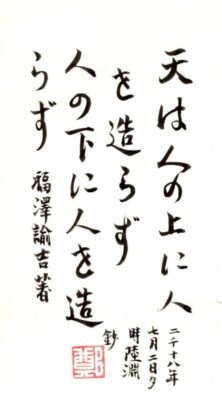 天は人の上に人
を造らず
人の下に人を造
らず
福澤諭吉著
二千十八年
七月二日夕
時陸淵
鈔
鄭